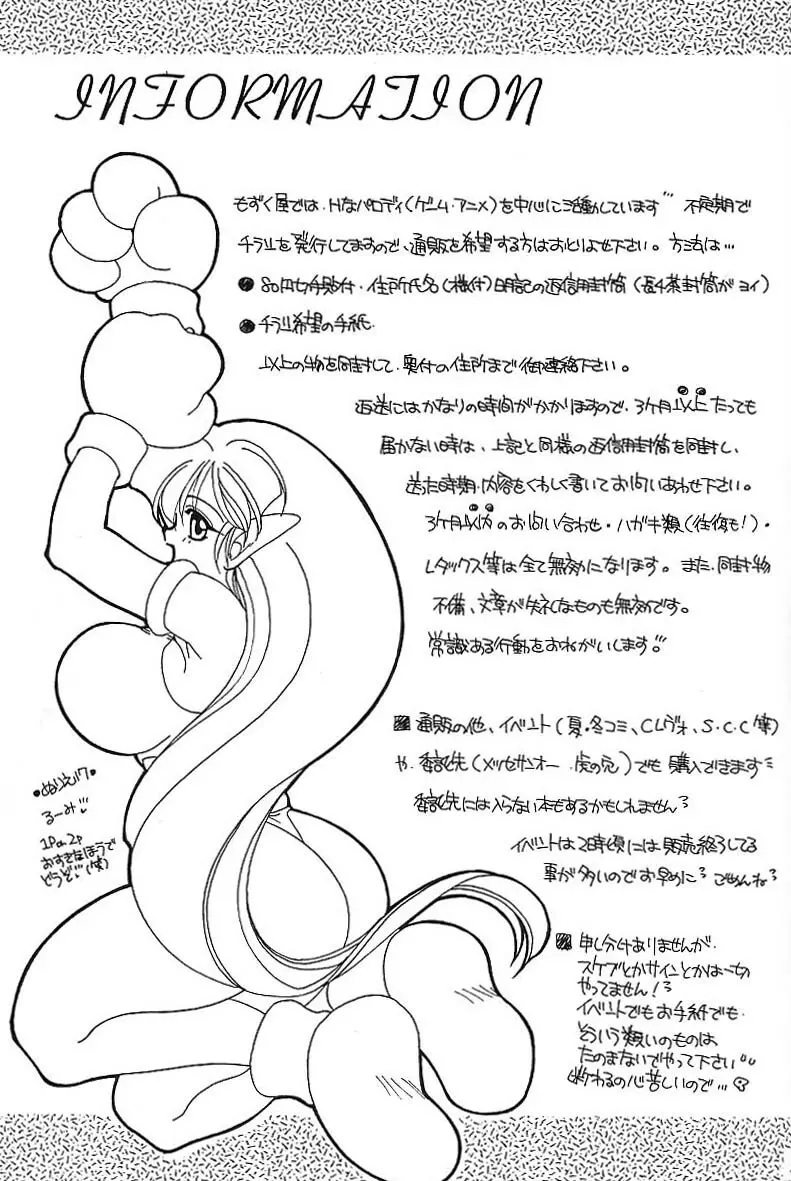 INFORMATION
もずく屋では、Hなパロディ(ゲーム・アニメ)を中心に活動しています 不定期で
チラシを発行してますので、通販を希望する方はおとりよせ下さい。方法は…
●80円切手貼付・住所氏名(様付)明記の返信用封筒(長4茶封筒がヨイ)
●チラシ希望の手紙.
以上の物を同封して、奥付の住所まで御連絡下さい。
返送にはかなりの時間がかかりますので、3ヶ月以上たっても
届かない時は、上記と同様の返信用封筒を同封し、
送た時期・内容をくわしく書いてお問いあわせ下さい。
3ヶ月以内のお問い合わせ・ハガキ類(往復も!)・
Lタックス等は全て無効になります。また、同封物
不備、文章が失礼なものも無効です。
常識ある行動をおねがいします!!
通販の他、イベント(夏・冬コミ、Cレヴォ、S.C.C等)
や、委託先(メッセサンオー、虎の穴)でも購入できます
委託先には入らない本もあるかもしれません?
イベントは2時頃には販売終了してる
事が多いのでお早めに? ごめんね?
申し分けありませんが、
スケブとかサインとかは一切
やってません!
イベントでもお手紙でも、
そういう類いのものは
たのまないでやって下さい
断わるの心苦しいので…
・ぬりえ・
るーみい
1Pか2P
おすきなほうで
どうぞ(笑)